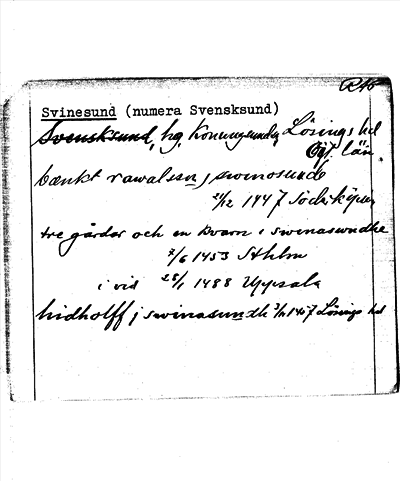 RAP
Svinesund (numera Svensksund)
Svensksund, hg. Konungsunds, Lösings hd
Ög. län.
bænkt rawalssn j swinosund
21/12 1447 Söderköping
tre gårdar och en kvarn i swinasundhe
7/6 1453 Sthlm
i vid 28/1 1488 Uppsala
hidholff j swinasundh 3/2 1457 Lösings hd